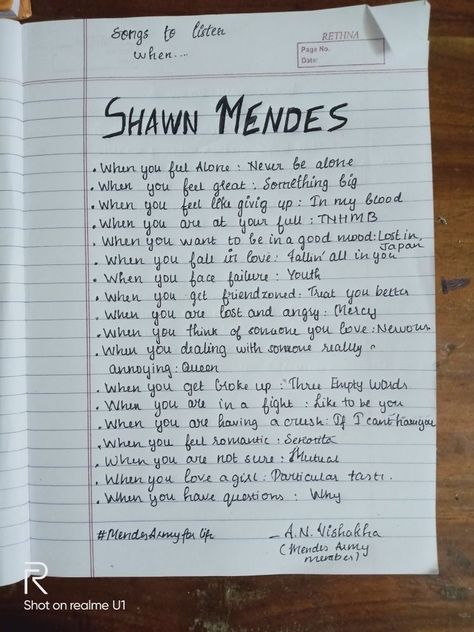 Songs to listen
when....
RETHNA
Page No.
Date:
SHAWN MENDES
• When you feel Alone : Never be alone
• When you feel great : Something big
• When you feel like givig up : In my blood
• When you are at your full : TNHMB
• When you want to be in a good mood: Lost in Japan
• When you fall in love: Fallin' all in you
• When you face failure : Youth
• When you get friendzoned: Treat you better
• When you are lost and angry: Mercy
• When you think of someone you love: Nervous
• When you dealing with someone really
annoying: Queen
• When you get broke up : Three Empty Words
• When you are in a fight : Like to be you
• When you are having a crush: If I can't have you
• When you feel romantic : Señorita
• When you are not sure : Mutual
• When you love a girl : Particular taste.
• When you have questions : Why
#MendesArmy for life
- A.N. Vishakha
(Mendes Army
member)
R
Shot on realme U1